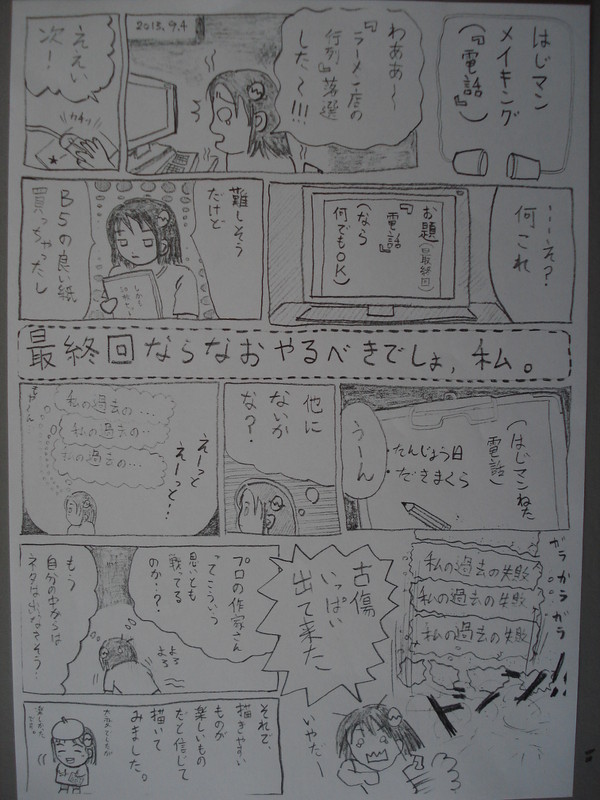 はじマン
メイキング
(『電話』)
2013.9.4
わああ〜
『ラーメン店の
行列』落選
した〜!!!
ええい
次!
カチッ
……え?
何これ
お題(最終回)
『電話』
(なら
何でもOK)
難しそう
だけど
B5の良い紙
買っちゃったし
最終回ならなおやるべきでしょ,私。
(はじマンねた
電話)
・たんじょう日
・だきまくら
うーん
他に
ないか
な?
えーと
えーっと!
私の過去の…
私の過去の…
私の過去の…
ガラガラガラ
私の過去の失敗
私の過去の失敗
私の過去の失敗
ドンッ!!
古傷
いっぱい
出て来た
いやだ〜
プロの作家さん
ってこういう
思いとも
戦ってる
のか…?
よろ
よろ
もう
自分の中からは
ネタは出いなさそう…
それで、
描きやすい
ものが
楽しいもの
だと信じて
描いて
みました。